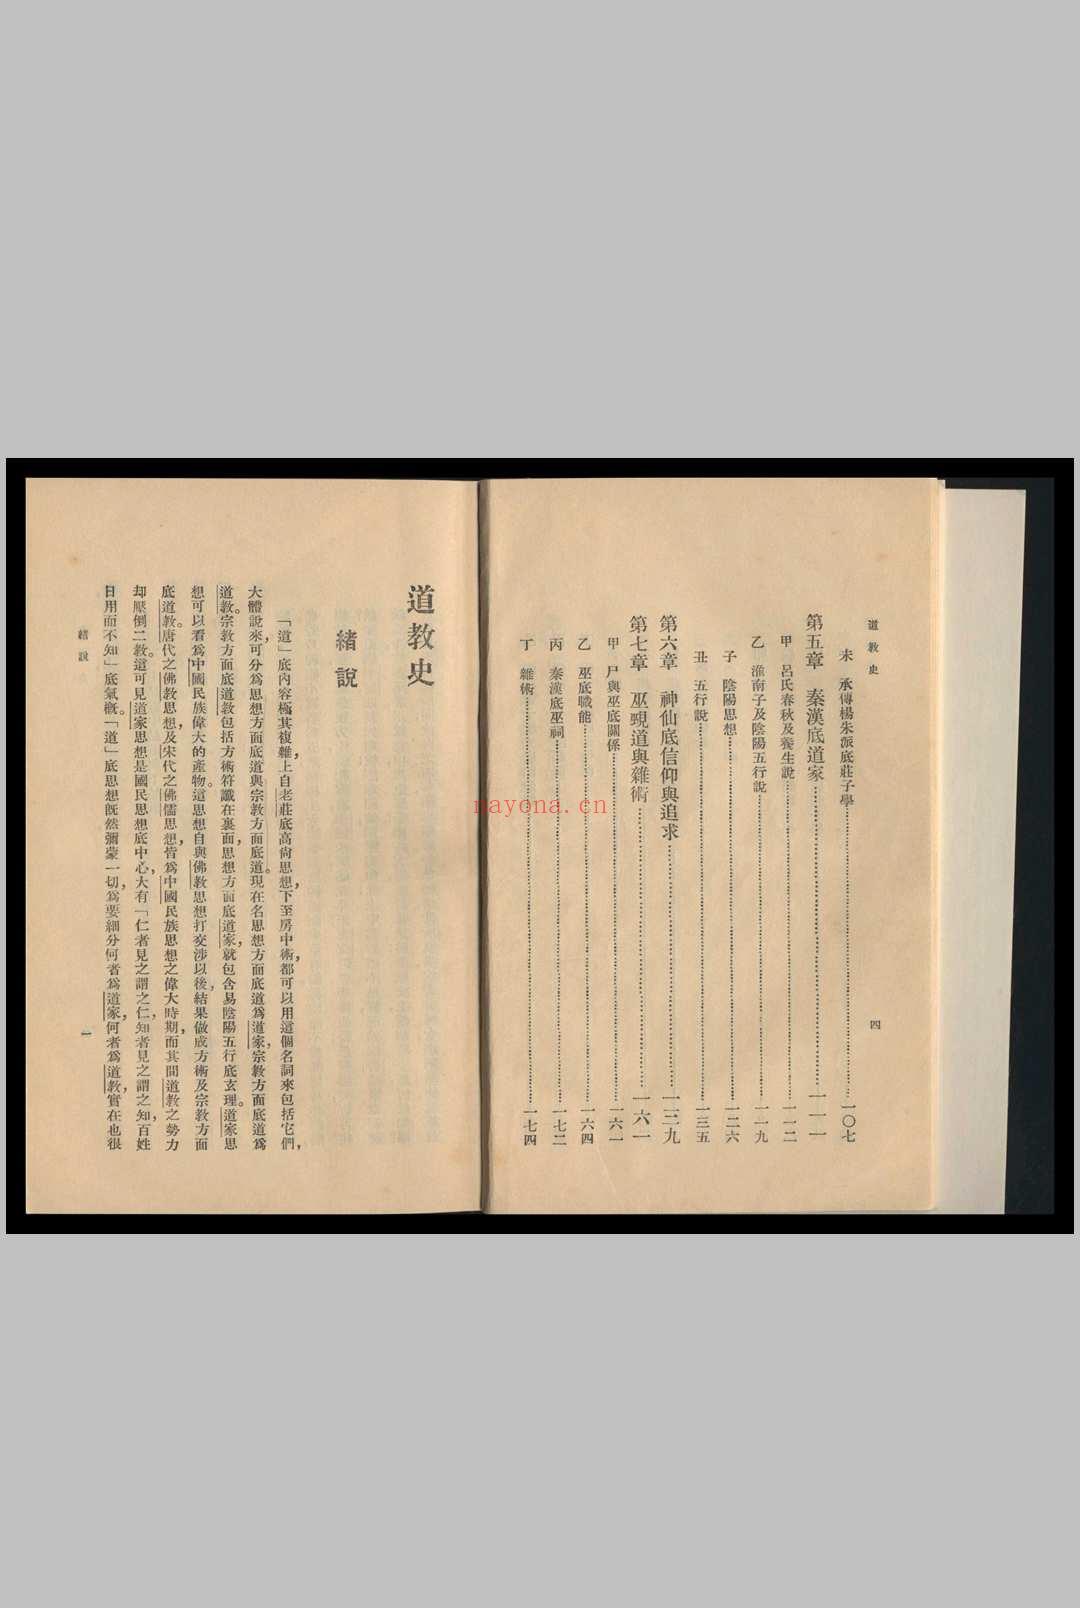 道教史
四
未　承傳楊朱派底莊子學……一〇七
第五章　秦漢底道家……一一一
甲　呂氏春秋及養生說……一一二
乙　淮南子及陰陽五行說……一一九
子　陰陽思想……一二六
丑　五行說……一三五
第六章　神仙底信仰與追求……一三九
第七章　巫覡道與雜術……一六一
甲　尸與巫底關係……一六一
乙　巫底職能……一六四
丙　秦漢底巫祠……一七二
丁　雜術……一七四
道教史
緒說
「道」底內容極其複雜，上自老莊底高尙思想，下至房中術，都可以用這個名詞來包括它們，
大體說來，可分爲思想方面底道與宗教方面底道。現在名思想方面底道爲道家，宗教方面底道爲
道教。宗教方面底道教包括方術符讖在裏面，思想方面底道家，就包含易陰陽五行底玄理。道家思
想可以看爲中國民族偉大的產物。這思想自與佛教思想打交涉以後，結果做成方術及宗教方面
底道教。唐代之佛教思想，及宋代之佛儒思想，皆爲中國民族思想之偉大時期，而其間道教之勢力
却壓倒二教。這可見道家思想是國民思想底中心，大有「仁者見之謂之仁，知者見之謂之知，百姓
日用而不知」底氣概。「道」底思想既然彌蒙一切，爲要細分何者爲道家，何者爲道教，實在也很
緒說
一
nayona.cn